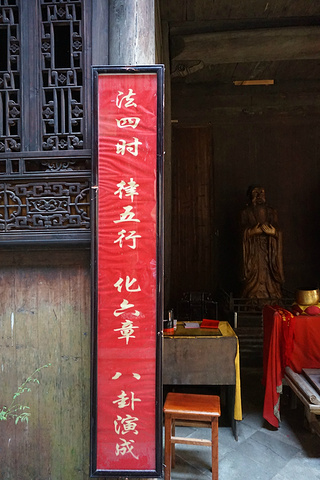 法四时 律五行 化六章 八卦演成